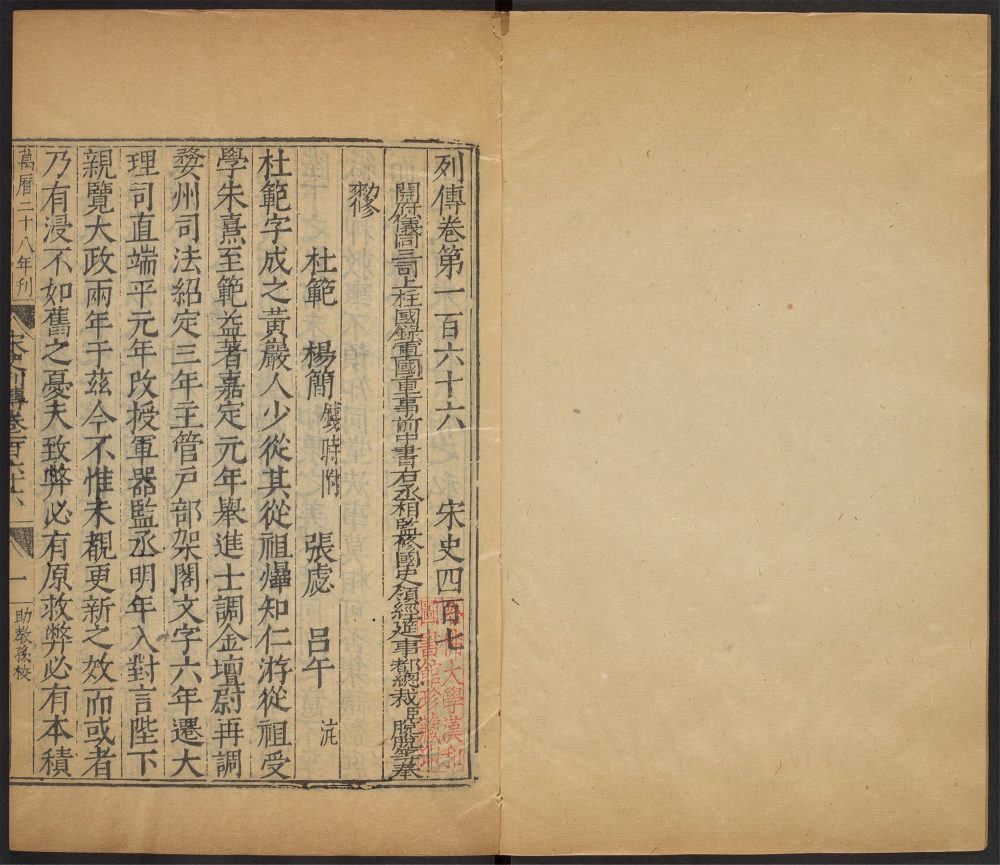 列傳卷第一百六十六　宋史四百七
開府儀同三司上柱國錄軍國重事前中書右丞相監修國史領經筵事都總裁臣脫脫等奉
敕修
杜範　楊簡　錢時附　張虙　呂午　沆
杜範字成之黃巖人少從其從祖爗知仁游從祖受
學朱熹至範益著嘉定元年舉進士調金壇尉再調
婺州司法紹定三年主管戶部架閣文字六年遷大
理司直端平元年改授軍器監丞明年入對言陛下
親覽大政兩年于茲今不惟未覩更新之效而或者
乃有浸不如舊之憂夫致弊必有原救弊必有本積
萬曆二十八年刊
宋史列傳卷百六十六
一
助教孫校
哈佛大學漢和
圖書館珍藏印